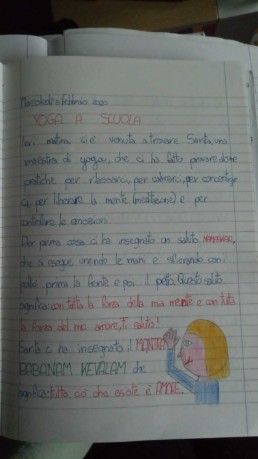 Mercoledì 5 febbraio 2020
YOGA A SCUOLA
Ieri mattina ci è venuta a trovare Santa, una
maestra di yoga, che ci ha fatto provare delle
pratiche per rilassarci, per calmarci, per concentrar
ci, per liberare la mente (meditazione) e per
controllare le emozioni.
Per prima cosa ci ha insegnato un saluto NAMASKAR,
che si esegue unendo le mani e
prima la fronte e poi il petto. Questo saluto
significa: con tutta la forza della mia mente e con tutta
la forza del mio amore, Ti saluto!
Santa ci ha insegnato il MANTRA
BABANAM KEVALAM che
significa: tutto ciò che esiste è AMORE.